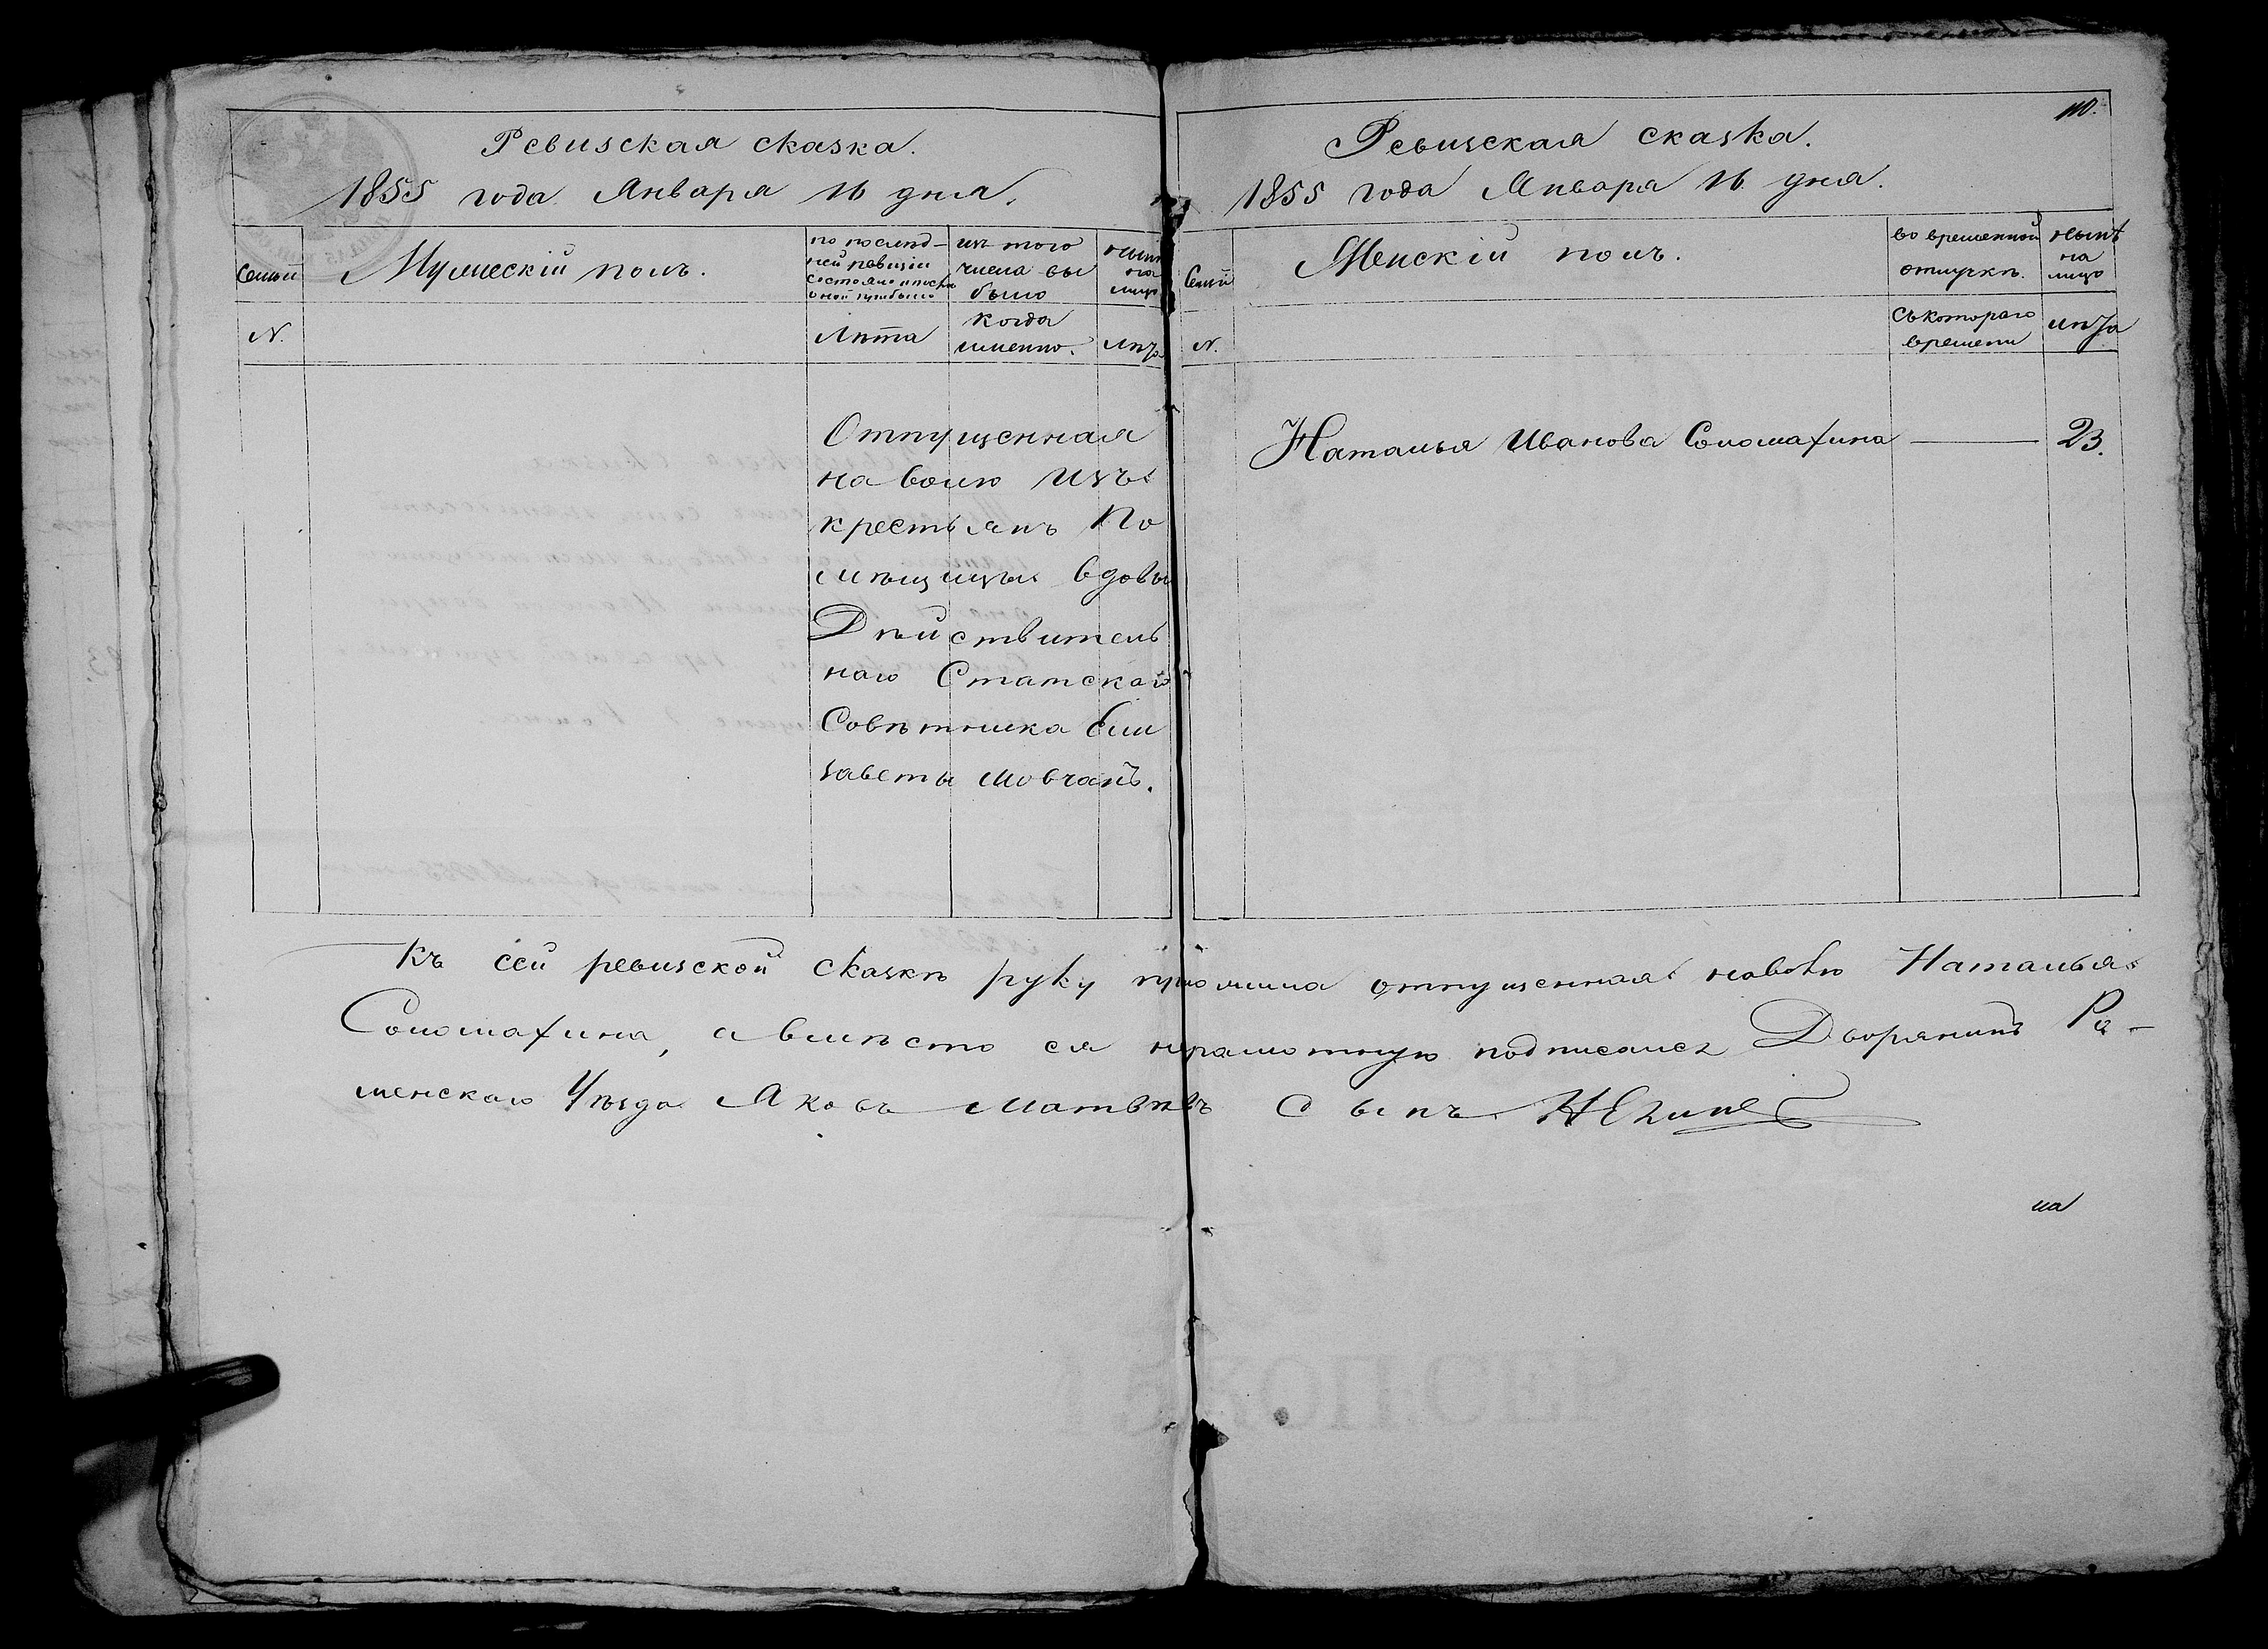 Ревизская сказка.
1855 года Января 16 дня.
Семьи
Мужескій полъ.
по послѣд-
ней ревизіи
состояло и послѣ
оной прибыло
изъ того
числа вы
было
нынѣ
на
лицо
N.
Лѣта
когда
именно.
Лѣта
Отпущенная
на волю изъ
крестьянъ По
мѣщицы вдовы
Дѣйствитель
наго Статскаго
Совѣтника Ели
заветы Мовчанъ.
110.
Ревизская сказка.
1855 года Января 16 дня.
Семьи
Женскій полъ.
во временной
отлучкѣ.
нынѣ
на
лицо
N.
съ котораго
времени
лѣта
Наталья Иванова Соломахина 23.
Къ сей ревизской сказкѣ руку приложила отпущенная наволю Наталья
Соломахина, а вмѣсто ея неграмотную подписался Дворянинъ Ро-
менскаго Уѣзда Яковъ Матвѣевъ Сынъ
на